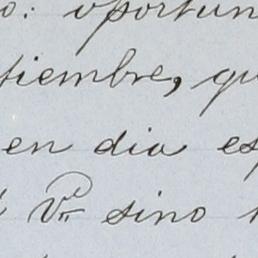 o: oportun
tiembre, qu
en dia es
Vn sino